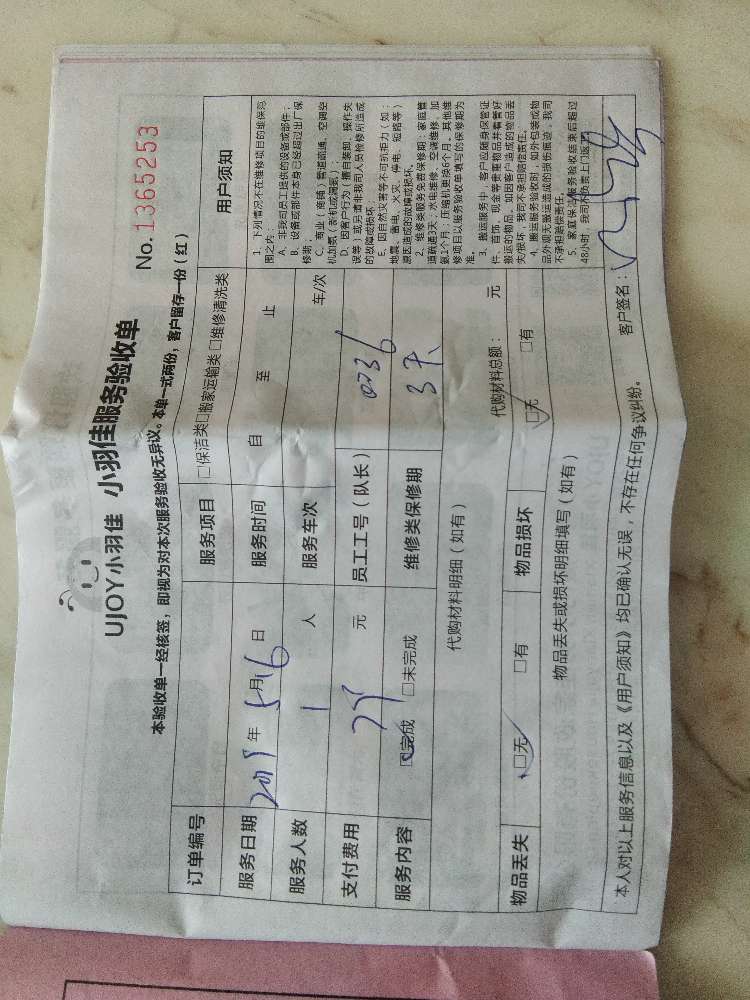 UJOY小羽佳 小羽佳服务验收单
No.1365253
本验收单一经核签，即视为对本次服务验收无异议。本单一式两份，客户留存一份（红）
订单编号 服务项目 □保洁类□搬家运输类□维修清洗类 用户须知
服务日期 年5月16日 服务时间 自 至 止
服务人数 1 人 服务车次 车/次
支付费用 元 员工工号（队长） 0736
服务内容 □完成 □未完成 维修类保修期 3天
代购材料明细（如有） 代购材料总额： 元
物品丢失 □无 □有 物品损坏 □无 □有
物品丢失或损坏明细填写（如有）
1、下列情况不在维修项目的维保范
围之内：
A、非我司员工提供的设备或部件；
B、设备或部件本身已经超过出厂保
修期
C、商业（商铺）管道疏通、空调空
机加氨（制机或满氨）
D、因客户行为（擅自装卸、操作失
误等）或另请非我司人员检修所造成
的故障或损坏
E、因自然灾害等不可抗拒力（如：
地震、蓄电、火灾、停电、短路等）
原因造成的故障或损坏。
2、维修类服务免费保修期：家庭管
道疏通3天，水电维修、空调维修、加
氨1个月，压缩机更换6个月，其他维
修项目以服务验收单填写的保修期为
准。
3、搬运服务中，客户应随身保管证
件、首饰、现金等贵重物品并看管好
搬运的物品。如因客户造成的物品丢
失/损坏，我司不承担赔偿责任。
4、搬运服务验收时，如外包装或物
品外观无搬运造成的损伤痕迹，我司
不承担赔偿责任。
5、家庭保洁服务验收结束后超过
48小时，我司不负责上门返工。
本人对以上服务信息以及《用户须知》均已确认无误，不存在任何争议纠纷。 客户签名：